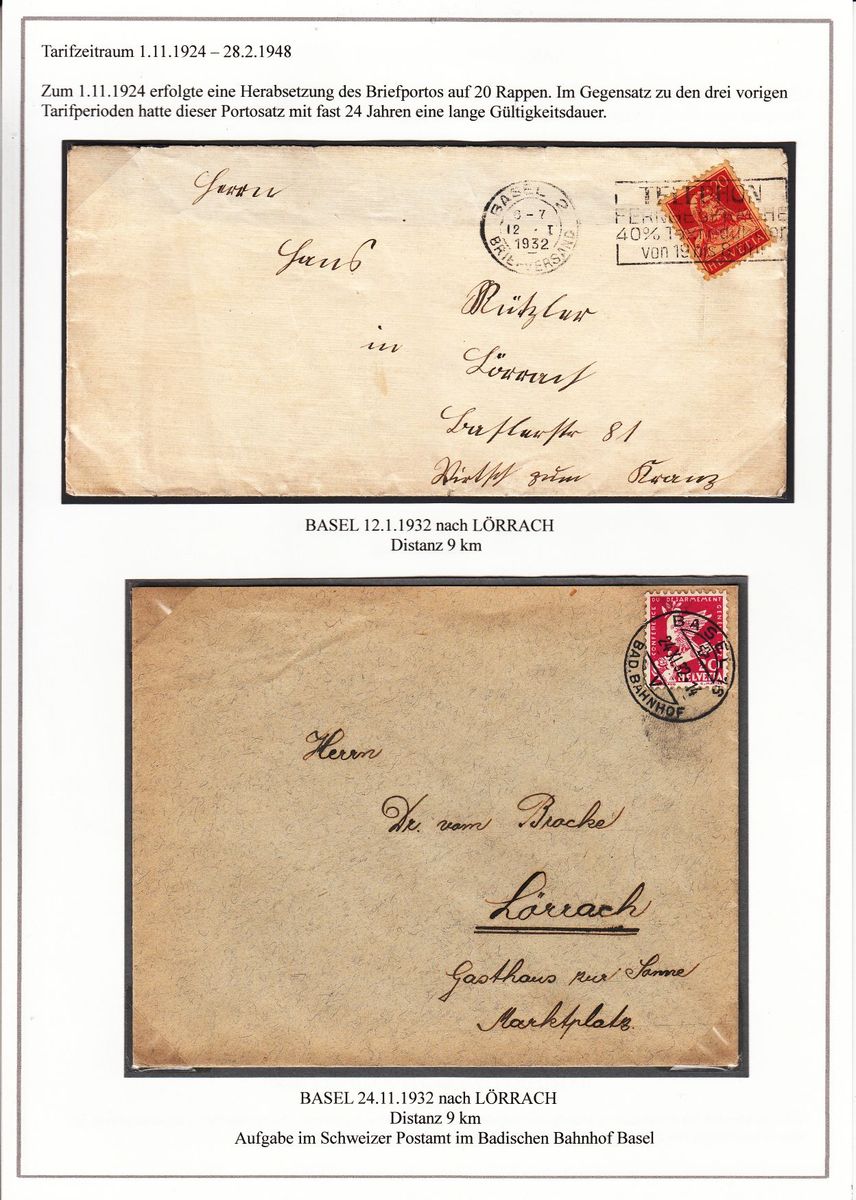 Tarifzeitraum 1.11.1924 – 28.2.1948
Zum 1.11.1924 erfolgte eine Herabsetzung des Briefportos auf 20 Rappen. Im Gegensatz zu den drei vorigen
Tarifperioden hatte dieser Portosatz mit fast 24 Jahren eine lange Gültigkeitsdauer.
Herrn
Hans
Rützler
in
Lörrach
Baslerstr 81
Wirtsch zum Kranz
BASEL 2
6-7
12 . I
1932
BRIEFVERSAND
TELEPHON
40%
von 19
20
HELVETIA
BASEL 12.1.1932 nach LÖRRACH
Distanz 9 km
CONFERENCE DU DESARMEMENT
HELVETIA
BASEL
24.XI.32
BAD. BAHNHOF
Herrn
Dr. vom Brocke
Lörrach
Gasthaus zur Sonne
Marktplatz.
BASEL 24.11.1932 nach LÖRRACH
Distanz 9 km
Aufgabe im Schweizer Postamt im Badischen Bahnhof Basel